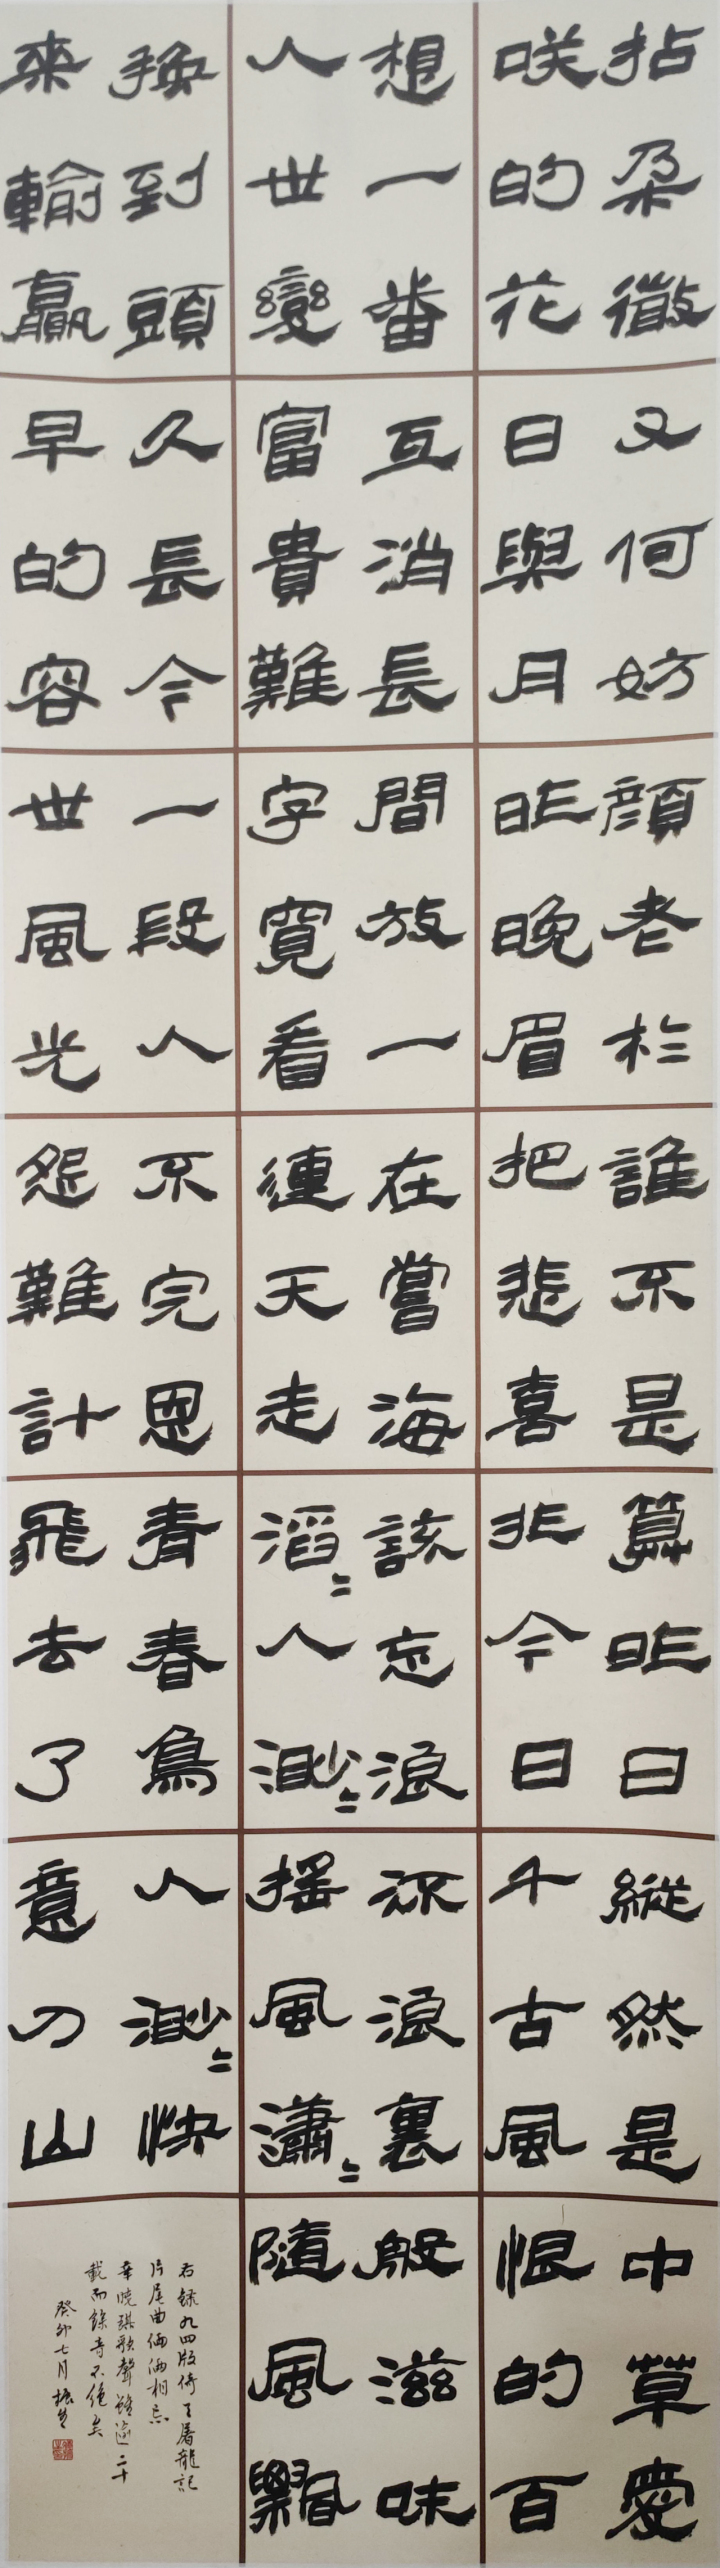 拈朵微
咲的花
想一番
人世變
換到頭
來輸贏
又何妨
日與月
互消長
富貴難
久長今
早的容
顏老於
昨晚眉
間放一
字寬看
一段人
世風光
誰不是
把悲喜
在嘗海
連天走
不完恩
怨難計
算昨日
非今日
該忘浪
滔〻人渺〻
青春鳥
飛去了
縱然是
千古風
浪裏
搖風瀟〻
人渺〻快
意刀山
中草愛
恨的百
般滋味
隨風飄
右錄九四版倚天屠龍記
片尾曲倆倆相忘
辛曉琪歌聲雖逾二十
載而餘音不絕矣
癸卯七月